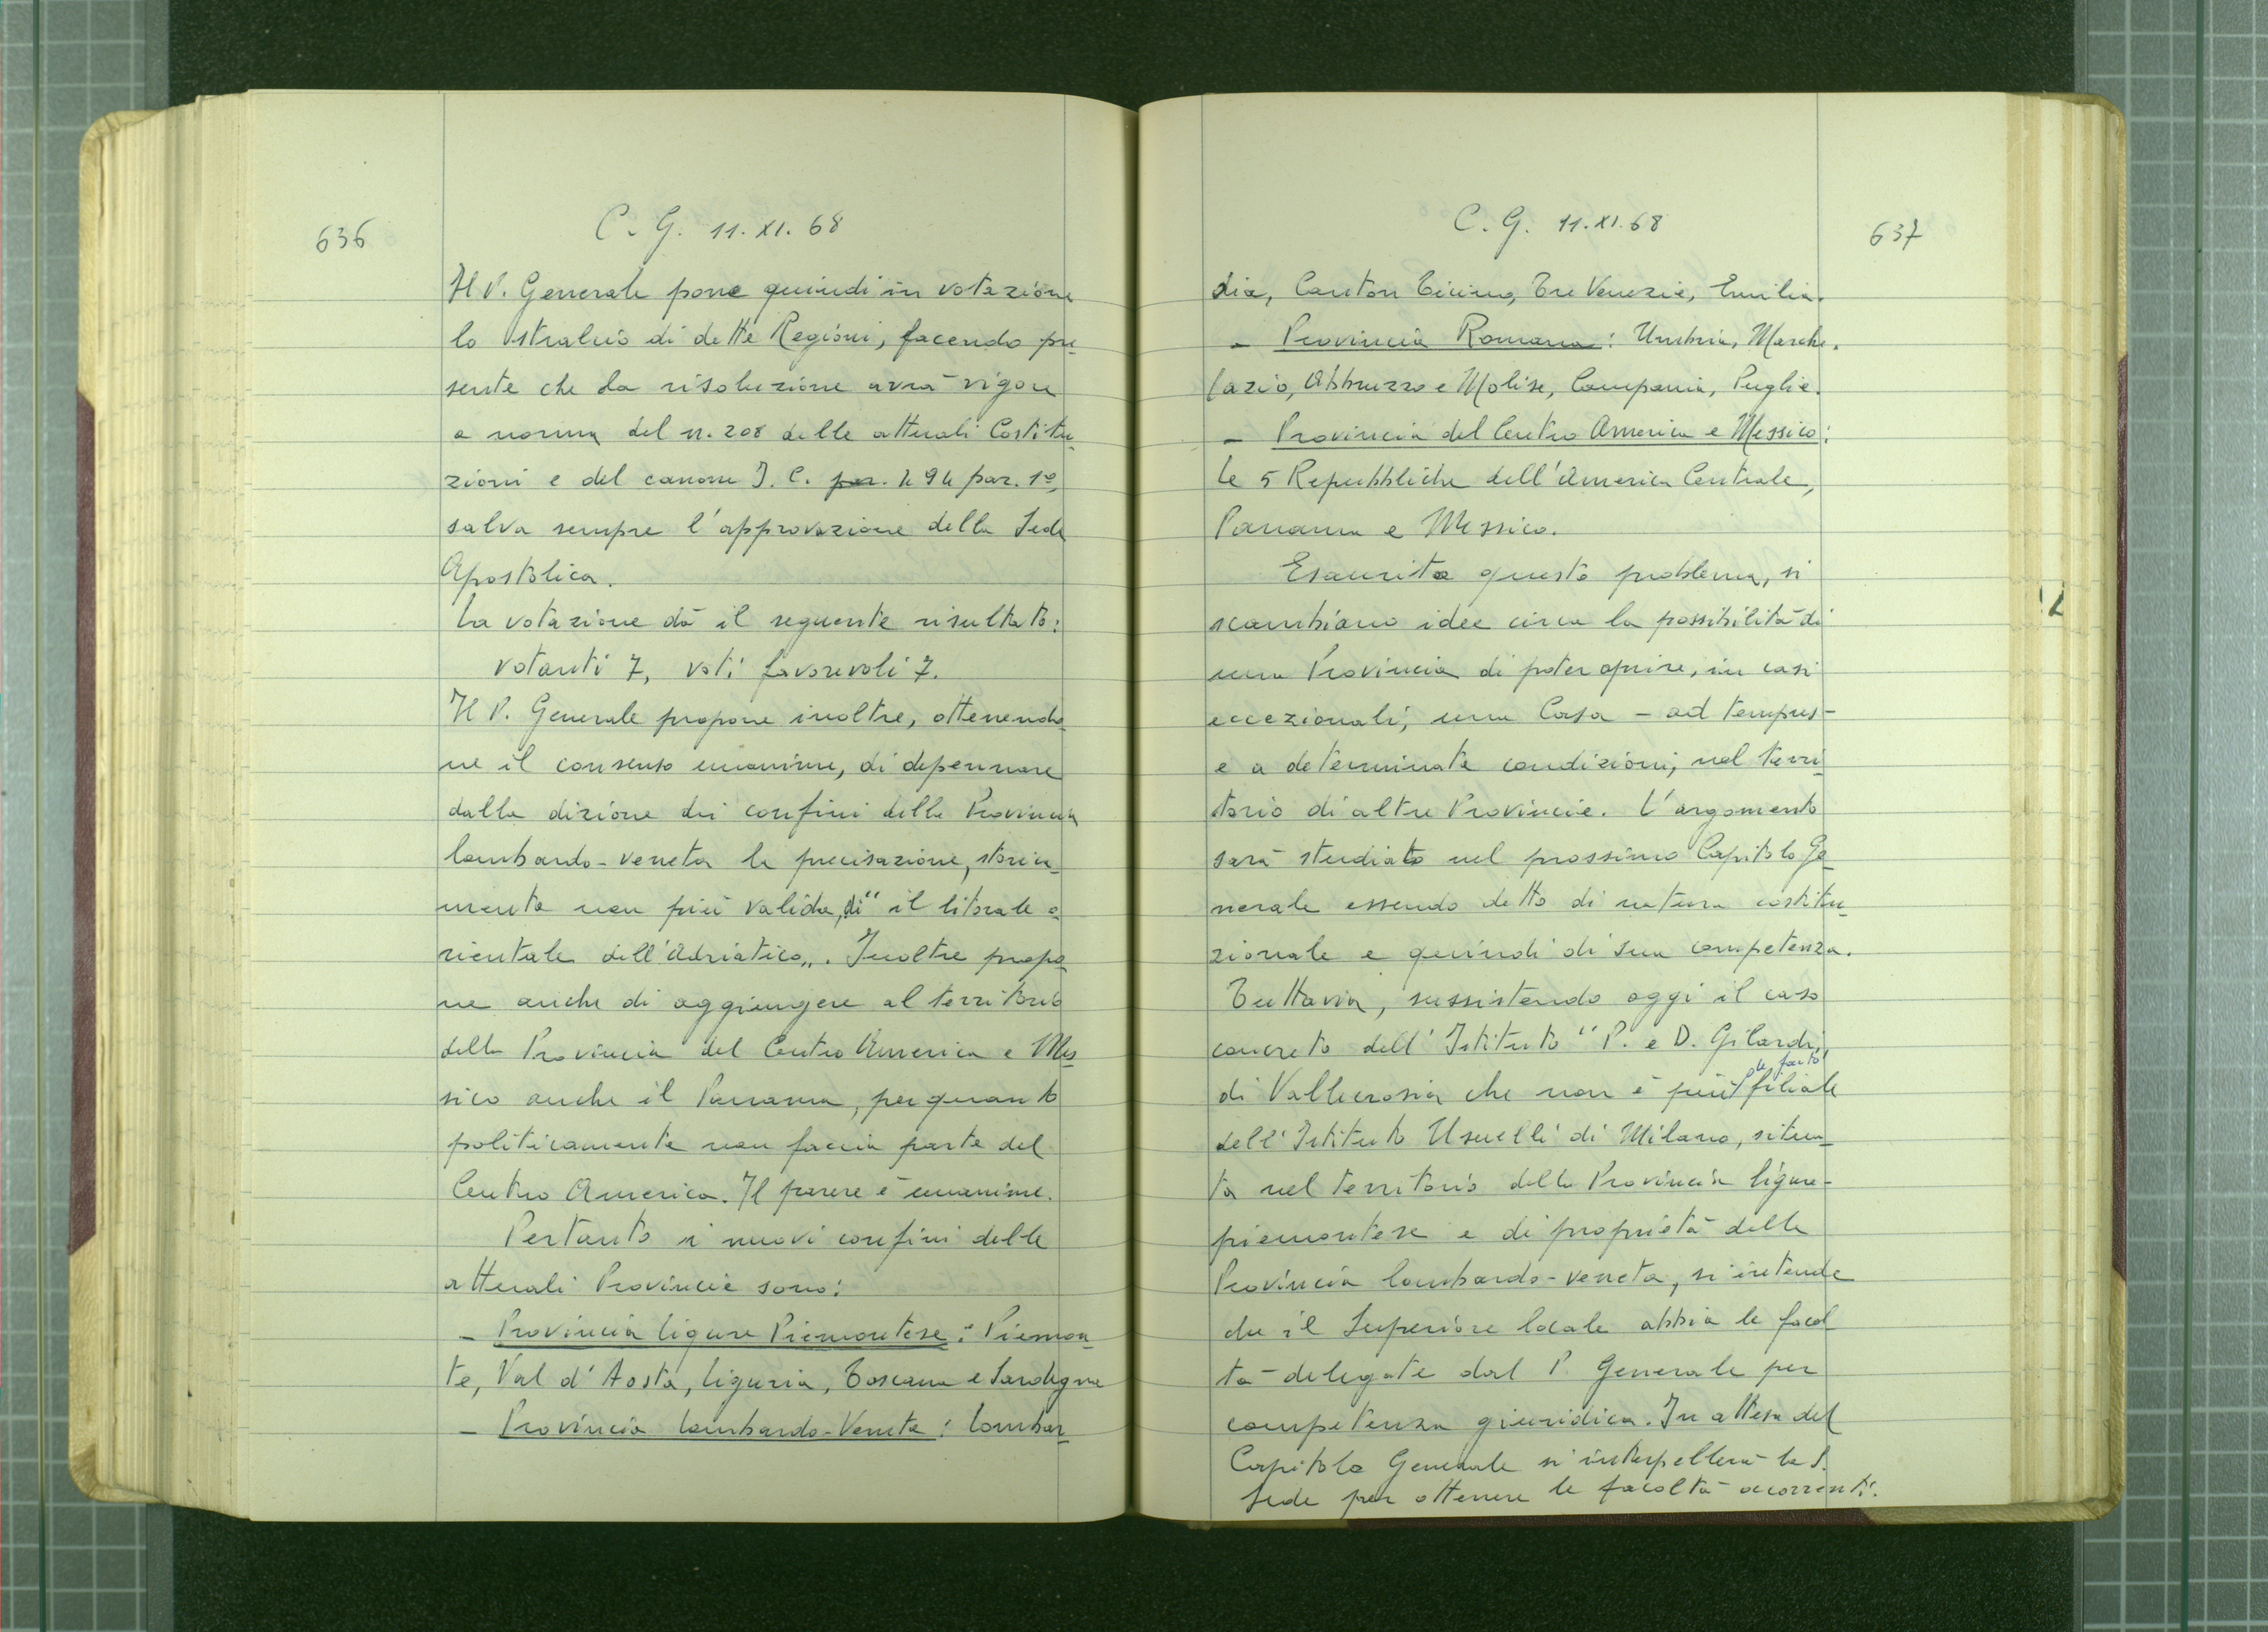 636
C. G. 11. XI. 68
Il P. Generale pone quindi in votazione
lo stralcio di dette Regioni, facendo pre
sente che la risoluzione avrà vigore
a norma del n. 208 delle attuali Costitu
zioni e del canone J. C. par. 494 par. 1º,
salva sempre l'approvazione della Sede
Apostolica.
La votazione dà il seguente risultato:
votanti 7, voti favorevoli 7.
Il P. Generale propone inoltre, ottenendo
ne il consenso unanime, di depennare
dalla dizione dei confini della Provincia
lombardo-veneta la precisazione, storica
mente non più valida, di "il litorale o
rientale dell'Adriatico". Inoltre propo
ne anche di aggiungere al territorio
della Provincia del Centro America e Mes
sico anche il Panama, per quanto
politicamente non faccia parte del
Centro America. Il parere è unanime.
Pertanto i nuovi confini delle
attuali Provincie sono:
- Provincia ligure Piemontese: Piemon
te, Val d'Aosta, Liguria, Toscana e Sardegna
- Provincia Lombardo-Veneta: Lombar
C. G. 11. XI. 68
637
dia, Canton Ticino, Tre Venezie, Emilia.
- Provincia Romana: Umbria, Marche.
Lazio, Abbruzzo e Molise, Campania, Puglie.
- Provincia del Centro America e Messico:
Le 5 Repubbliche dell'America Centrale,
Panama e Messico.
Esaurito questo problema, si
scambiano idee circa la possibilità di
una Provincia di poter aprire, in casi
eccezionali, una Casa - ad tempus -
e a determinate condizioni, nel terri
torio di altre Provincie. L'argomento
sarà studiato nel prossimo Capitolo Ge
nerale essendo detto di natura costitu
zionale e quindi di sua competenza.
Tuttavia, sussistendo oggi il caso
concreto dell'Istituto "P. e D. Gilardi"
de facto
di Vallecrosia che non è più filiale
dell'Istituto Usuelli di Milano, situa
ta nel territorio della Provincia ligure-
piemontese e di proprietà della
Provincia lombardo-veneta, si intende
che il Superiore locale abbia le facol
tà delegate dal P. Generale per
competenza giuridica. In attesa del
Capitolo Generale si interpellerà la S.
Sede per ottenere le facoltà occorrenti.